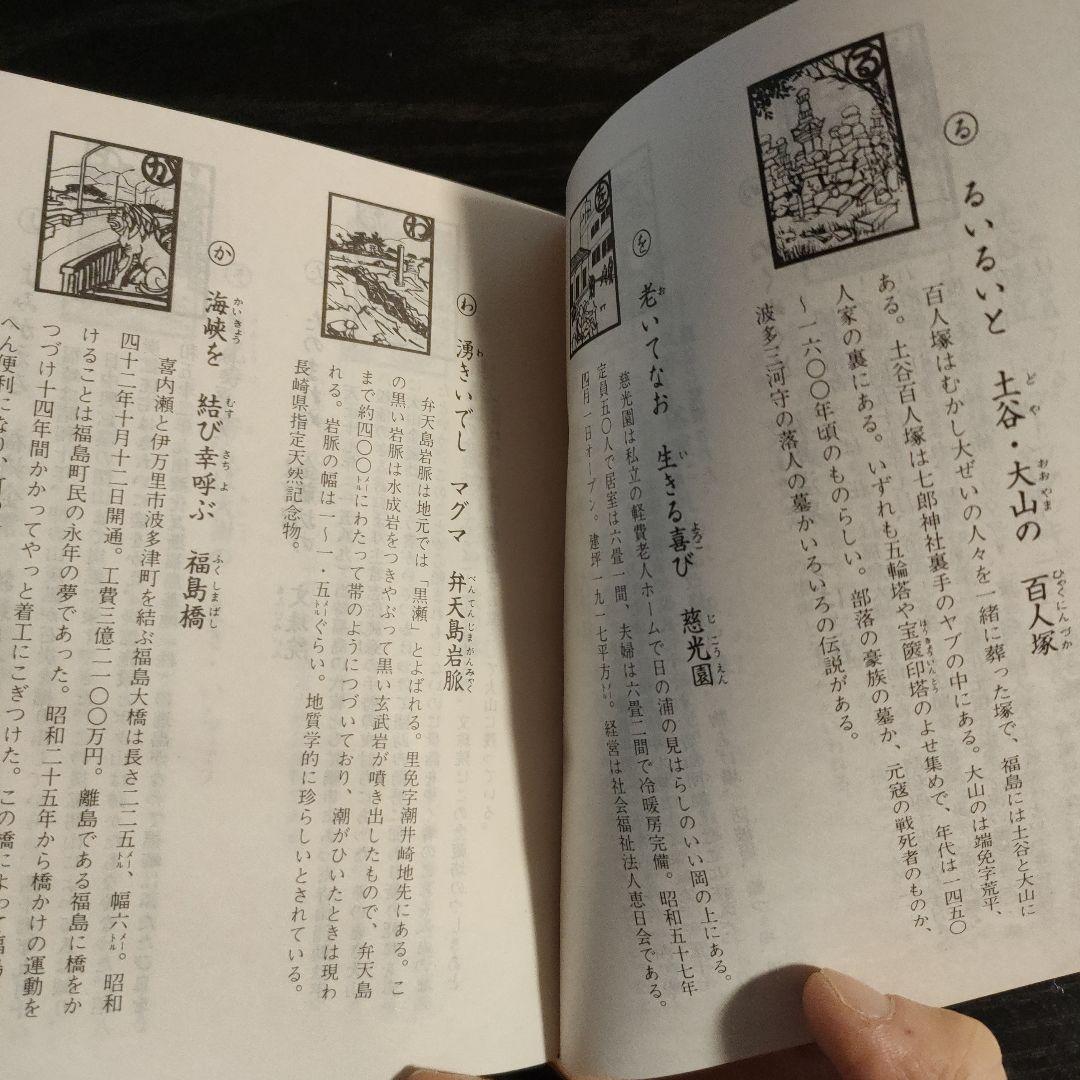 る
る るいるいと 土谷・大山の 百人塚
どや おおやま ひゃくにんづか
百人塚はむかし大ぜいの人々を一緒に葬った塚で、福島には土谷と大山に
ある。土谷百人塚は七郎神社裏手のヤブの中にある。大山のは端免字荒平、
人家の裏にある。いずれも五輪塔や宝篋印塔のよせ集めで、年代は一四五〇
ほうきょういんとう
〜一六〇〇年頃のものらしい。部落の豪族の墓か、元寇の戦死者のものか、
波多三河守の落人の墓かいろいろの伝説がある。
を
を 老いてなお 生きる喜び 慈光園
お い よろこ じこうえん
慈光園は私立の経費老人ホームで日の浦の見はらしのいい岡の上にある。
定員五〇人で居室は六畳一間、夫婦は六畳二間で冷暖房完備。昭和五十七年
四月一日オープン。建坪一九一七平方メートル。経営は社会福祉法人恵日会である。
わ
わ 湧きいでし マグマ 弁天島岩脈
わ べんてんじまがんみゃく
弁天島岩脈は地元では「黒瀬」とよばれる。里免字潮井崎地先にある。こ
の黒い岩脈は水成岩をつきやぶって黒い玄武岩が噴き出したもので、弁天島
まで約四〇〇メートルにわたって帯のようにつづいており、潮がひいたときは現わ
れる。岩脈の幅は一〜一・五メートルぐらい。地質学的に珍らしいとされている。
長崎県指定天然記念物。
か
か 海峡を 結び幸呼ぶ 福島橋
かいきょう むす さちよ ふくしまばし
喜内瀬と伊万里市波多津町を結ぶ福島大橋は長さ二二五メートル、幅六メートル。昭和
四十二年十月十二日開通。工費三億二一〇〇万円。離島である福島に橋をか
けることは福島町民の永年の夢であった。昭和二十五年から橋かけの運動を
つづけ十四年間かかってやっと着工にこぎつけた。この橋によって福島
へん便利になり、